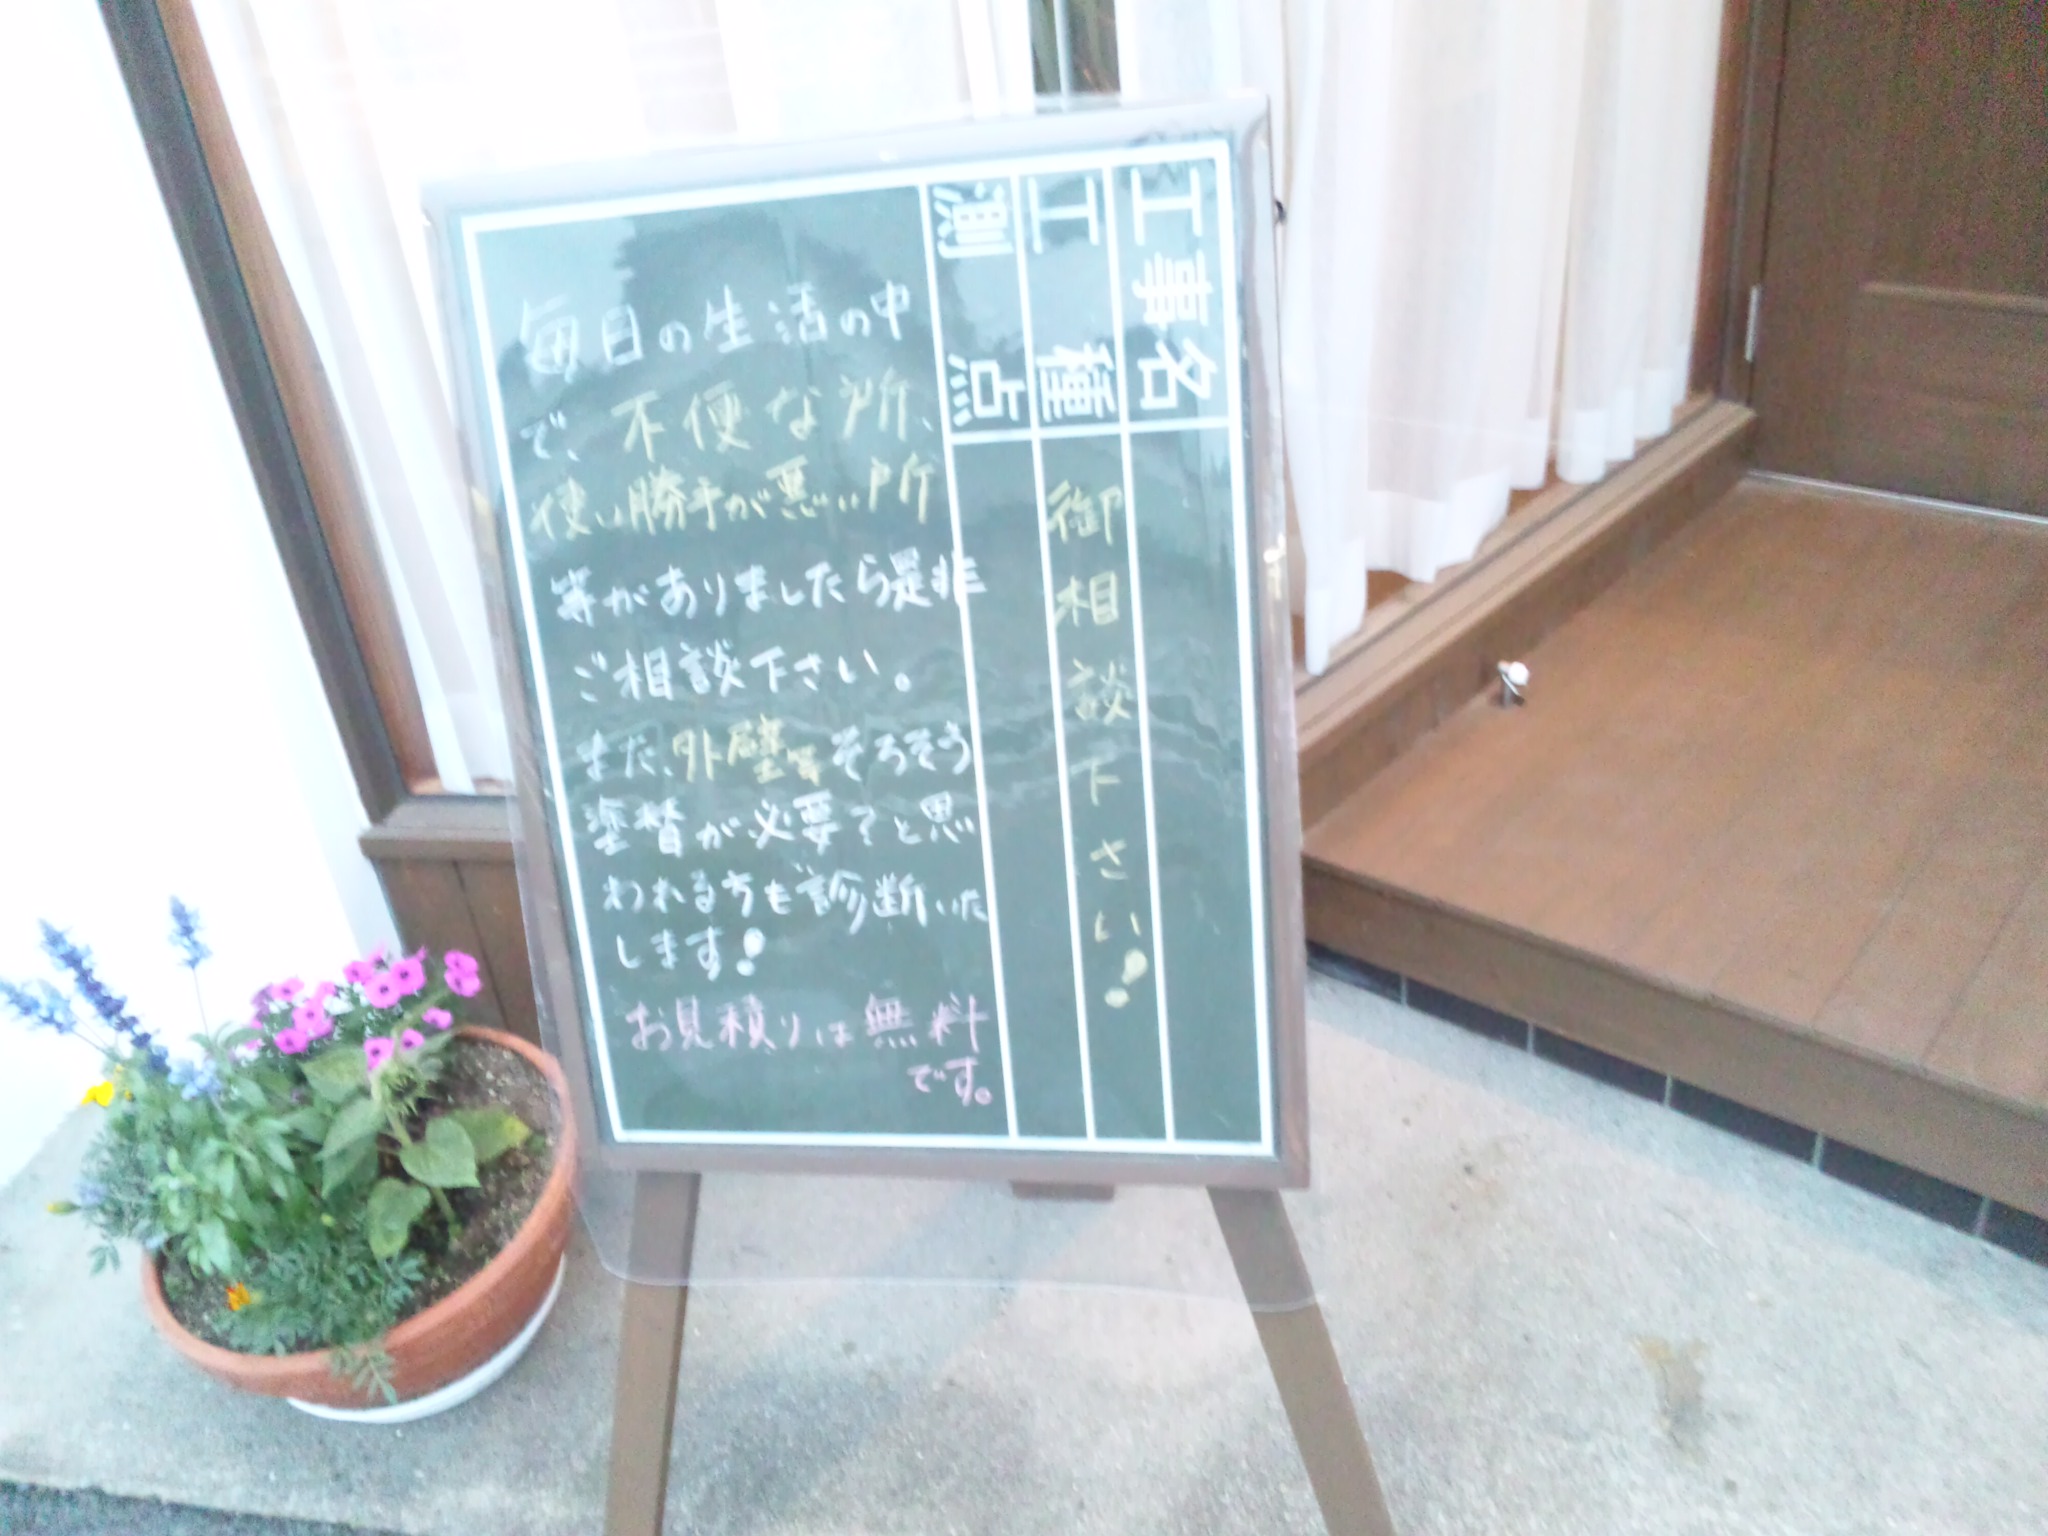 工事名
工種
測点
御相談下さい!
毎日の生活の中
で、不便な所、
使い勝手が悪い所
等がありましたら是非
ご相談下さい。
また、外壁等そろそろ
塗替が必要?と思
われる方も診断いた
します!
お見積りは無料
です。